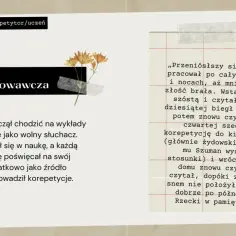 petytor/uczeń
owawcza
czął chodzić na wykłady
jako wolny słuchacz.
ł się w naukę, a każdą
poświęcał na swój
atkowo jako źródło
owadził korepetycje.
„Przeniósłszy się
pracował po cały
i nocach, aż mni
złość brała. Wsta
szóstą i czytał
dziesiątej biegł
potem znowu czy
czwartej szed
korepetycję do ki
(głównie żydowski
mu Szuman wy
stosunki) i wróc
domu znowu czy
czytał, dopóki z
snem nie położył
dobrze po półn
Rzecki w pamię